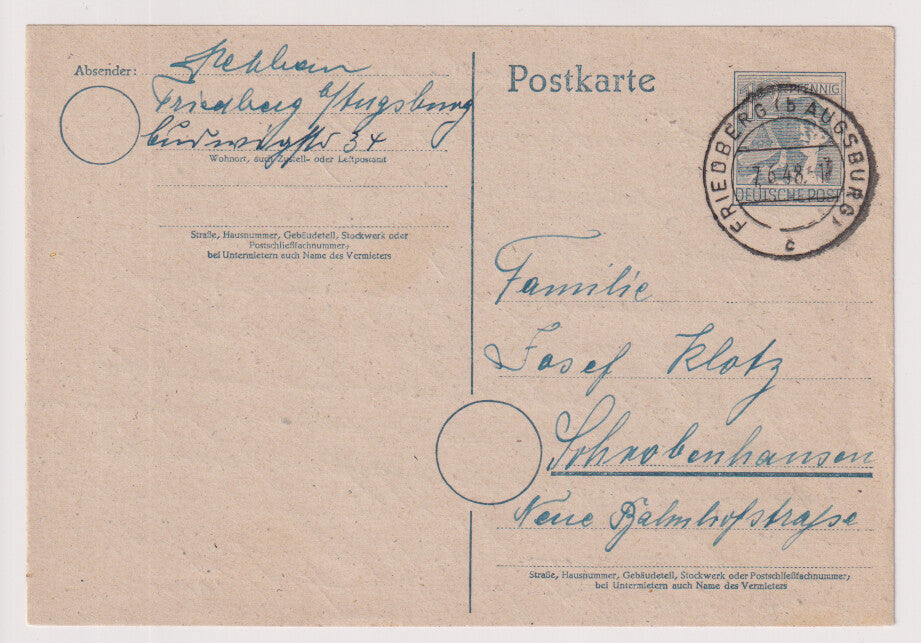 Absender:
Friedberg b/Augsburg
Ludwigstr 34
Wohnort, auch Zustell- oder Leitpostamt
Straße, Hausnummer, Gebäudeteil, Stockwerk oder
Postschließfachnummer;
bei Untermietern auch Name des Vermieters
Postkarte
PFENNIG
FRIEDBERG (b AUGSBURG)
7.6.48
DEUTSCHE POST
c
Familie
Josef Klotz
Schrobenhausen
Neue Bahnhofstraße
Straße, Hausnummer, Gebäudeteil, Stockwerk oder Postschließfachnummer;
bei Untermietern auch Name des Vermieters